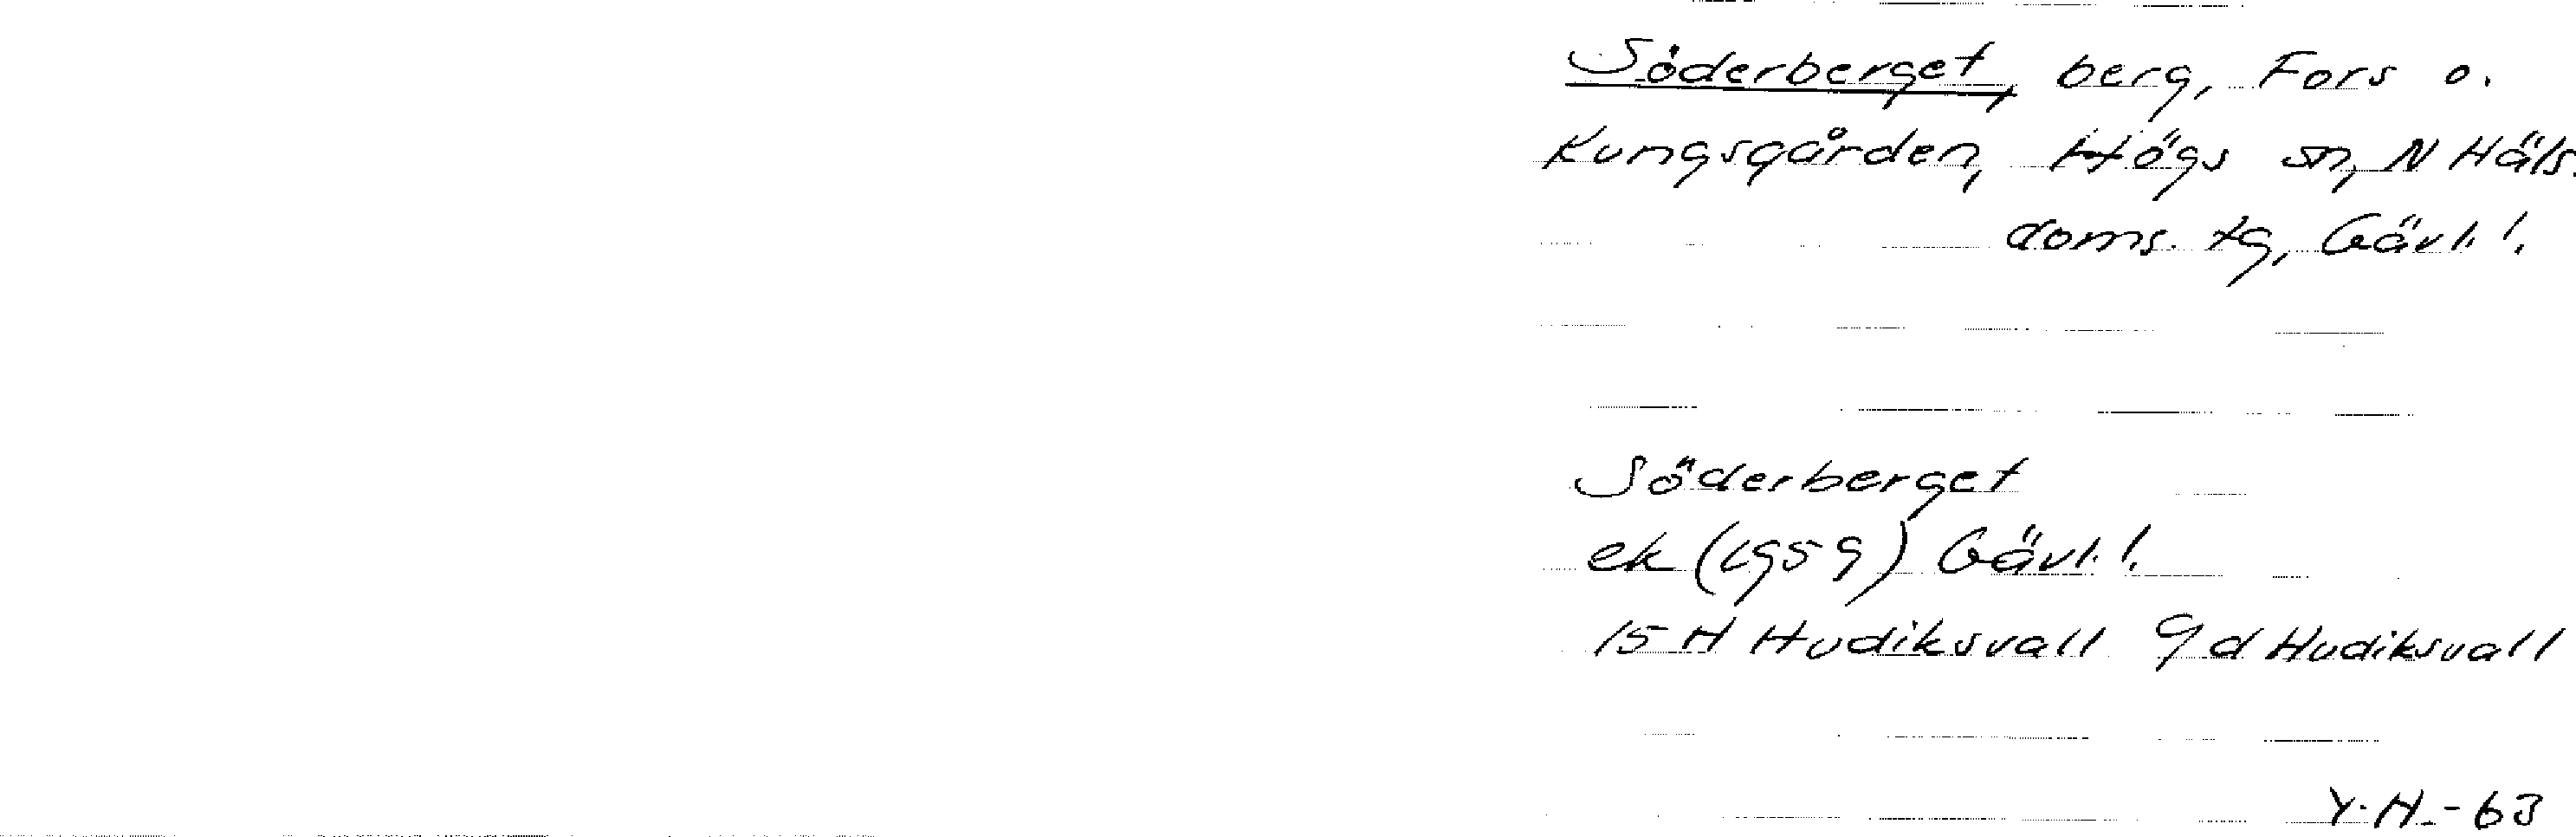 Söderberget, berg, Fors o.
Kungsgården, Högs sn, N Häls.
doms. tg, Gävl. l.
Söderberget
ek (1959) Gävl. l.
15 H Hudiksvall 9 d Hudiksvall
Y.H.-63